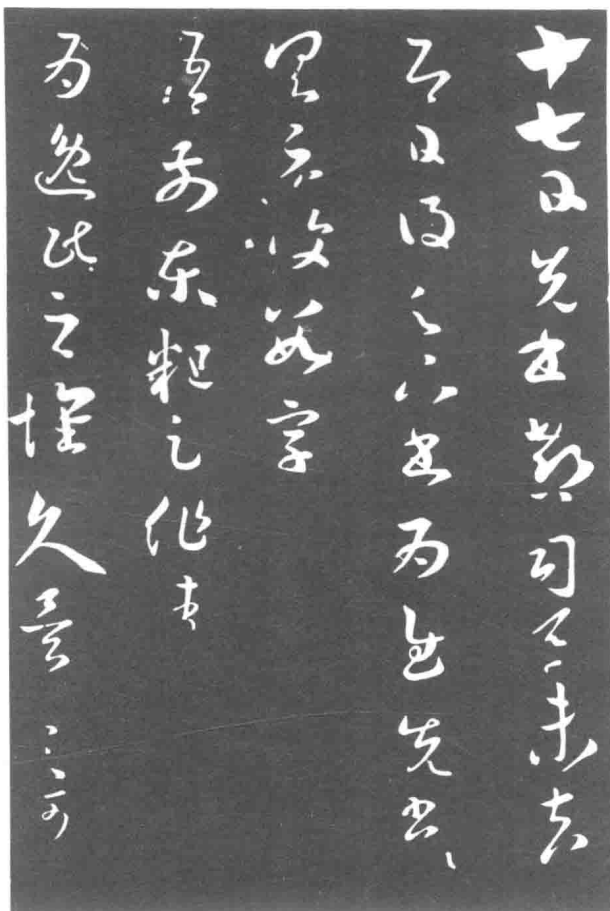 十七日先書郗司馬未去
即日得足下書為慰先書以
具示復數字
吾前東粗足作佳
為逸民之懷久矣足下何